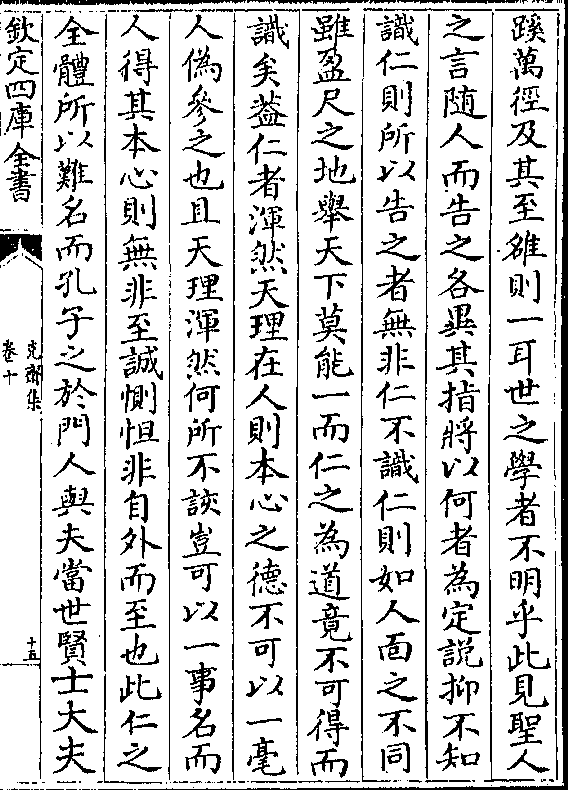 蹊萬徑及其至雖則一耳世之學者不明乎此見聖人
之言隨人而告之各異其指將以何者為定説抑不知
識仁則所以告之者無非仁不識仁則如人面之不同
雖盈尺之地舉天下莫能一而仁之為道竟不可得而
識矣葢仁者渾然天理在人則本心之德不可以一毫
人僞參之也且天理渾然何所不該豈可以一事名而
人得其本心則無非至誠惻怛非自外而至也此仁之
全體所以難名而孔子之於門人與夫當世賢士大夫
欽定四庫全書
克齋集
卷十
十五